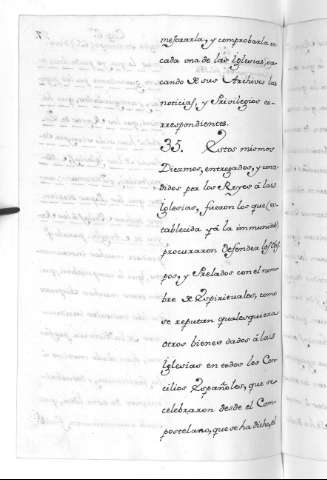 mostrarla, y comprobarla en
cada una de las Iglesias, sa
cando de sus Archivos las
noticias, y Privilegios co
rrespondientes.
35. Estos mismos
Diezmos, entregados, y con
didos por los Reyes á las
Iglesias, fueron los que (es
tablecida yá la immunidad)
procuraron defender los Obis
pos, y Prelados con el nom
bre de Espirituales, como
se reputan qualesquiera
otros bienes dados á las
Iglesias en todos los Con
cilios Españoles, que se
celebraron desde el Com
postelano, que se ha dicho, el